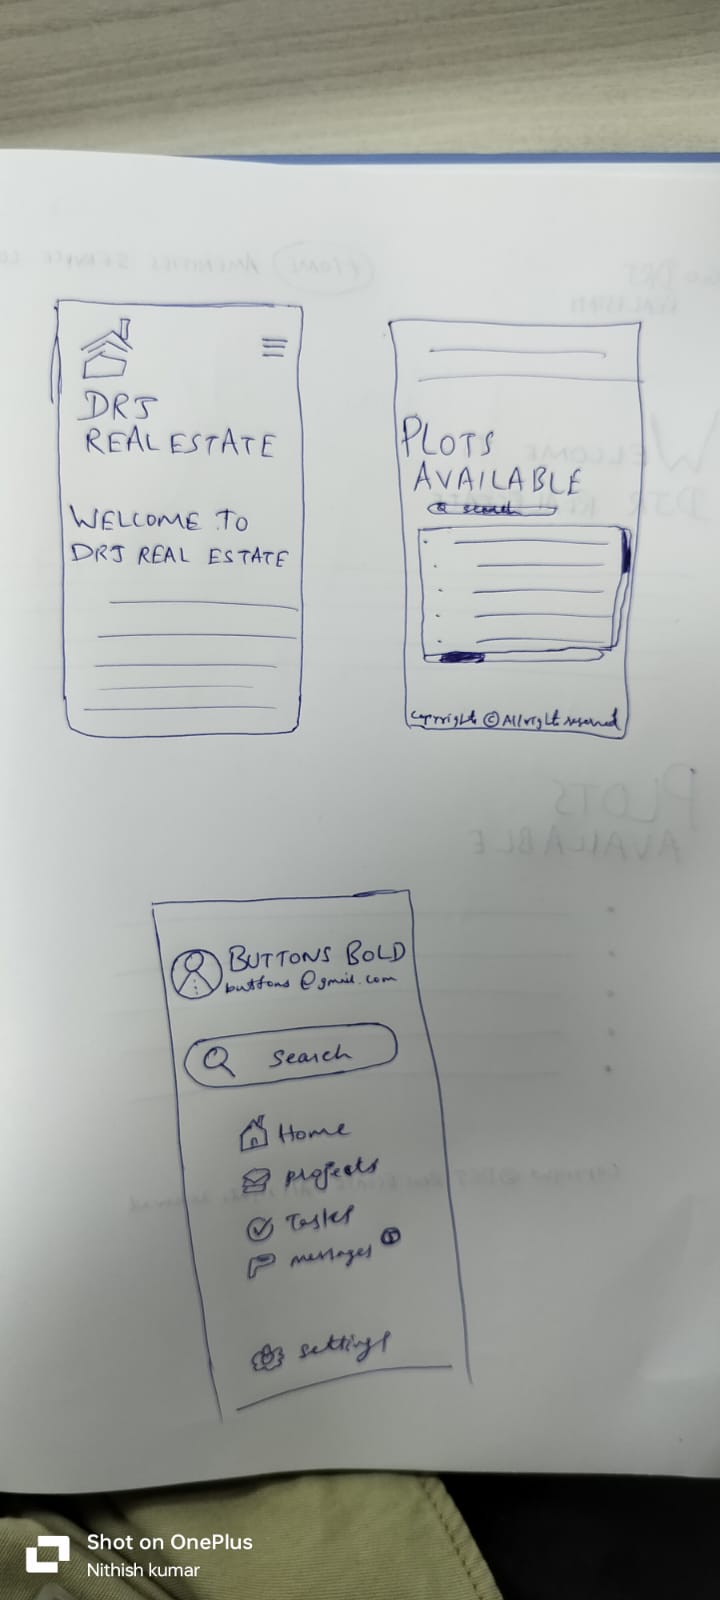 DRJ
REAL ESTATE
WELCOME TO
DRJ REAL ESTATE
PLOTS
AVAILABLE
search
Copyright © All right reserved
BUTTONS BOLD
buttons@gmail.com
Search
Home
projects
Tasks
messages
settings
Shot on OnePlus
Nithish kumar